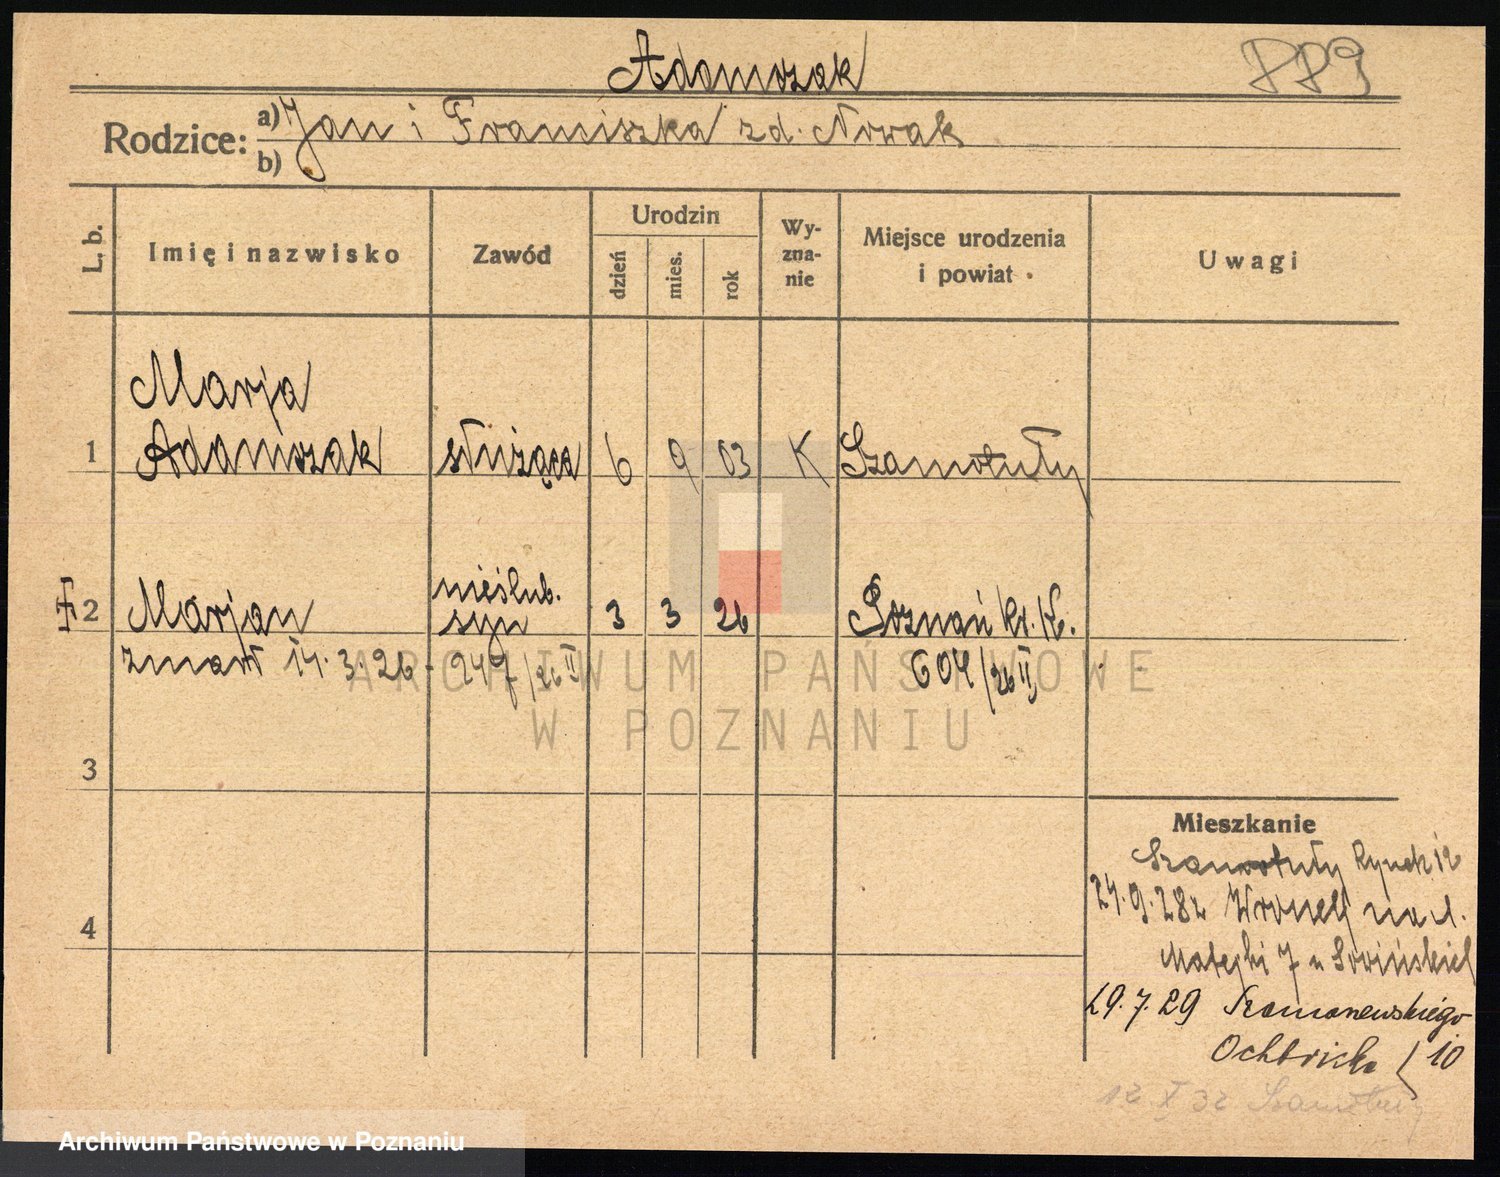 Adamczak
Rodzice: a) Jan i Franciszka zd. Nowak
b)
L. b. Imię i nazwisko Zawód Urodzin dzień mies. rok Wy-zna-nie Miejsce urodzenia i powiat Uwagi
Marja
1 Adamczak służąca 6 9 03 K Szamotuły
nieślub.
2 Marjan syn 3 3 26 Poznań
zmarł 14.3.26 - 247/26 II 604/26 II
3
Mieszkanie
Szamotuły Rynek 12
4
Matejki 7
29.7.29
10
12 X 32 Szamotuły
ARCHIWUM PAŃSTWOWE
W POZNANIU
Archiwum Państwowe w Poznaniu